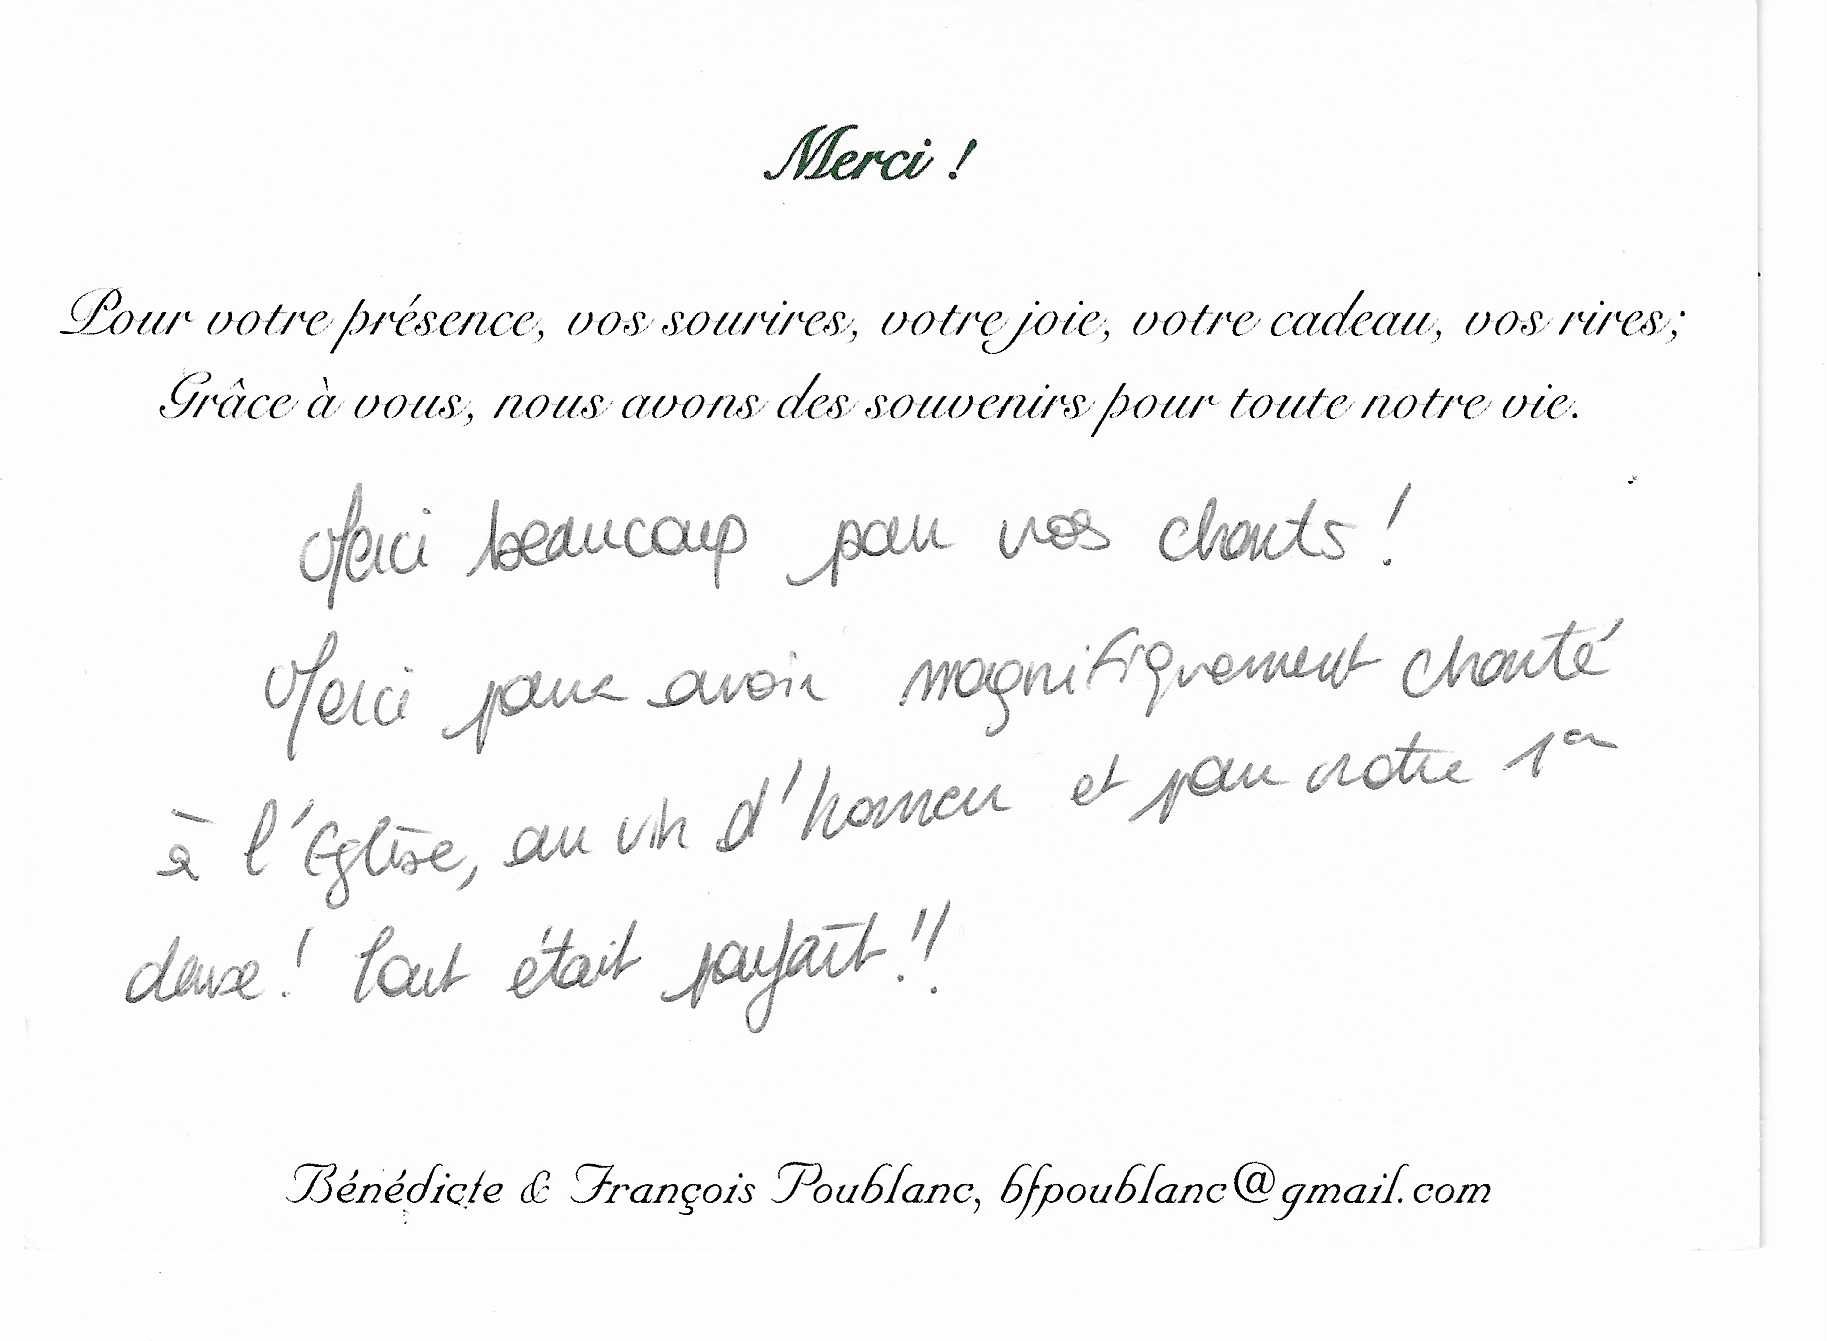 Merci !
Pour votre présence, vos sourires, votre joie, votre cadeau, vos rires;
Grâce à vous, nous avons des souvenirs pour toute notre vie.
Merci beaucoup pour vos chants !
Merci pour avoir magnifiquement chanté
à l'Eglise, au vin d'honneur et pour notre 1ère
danse ! Tout était parfait !!
Bénédicte & François Poublanc, bfpoublanc@gmail.com